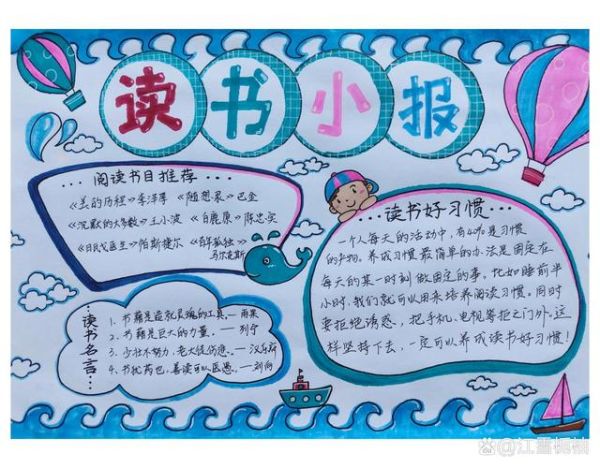 读书小报
…阅读书目推荐…
《美的历程》李泽厚 《随想录》巴金
《沉默的大多数》王小波 《白鹿原》陈忠实
《日瓦戈医生》帕斯捷尔 《百年孤独》
马尔克斯
读书名言
1、书籍是造就灵魂的工具。—雨果
2、书籍是巨大的力量。—列宁
3、少壮不努力，老大徒伤悲。—汉乐府
4、书犹药也，善读可以医愚。—刘向
…读书好习惯…
一个人每天的活动中，有40%是习惯
的产物。养成习惯最简单的办法是固定在
每天的某一时刻做固定的事。比如睡前半
小时，我们就可以用来培养阅读习惯。同时
要拒绝诱惑，把手机、电视等拒之门外。这
样坚持下去，一定可以养成读书好习惯！